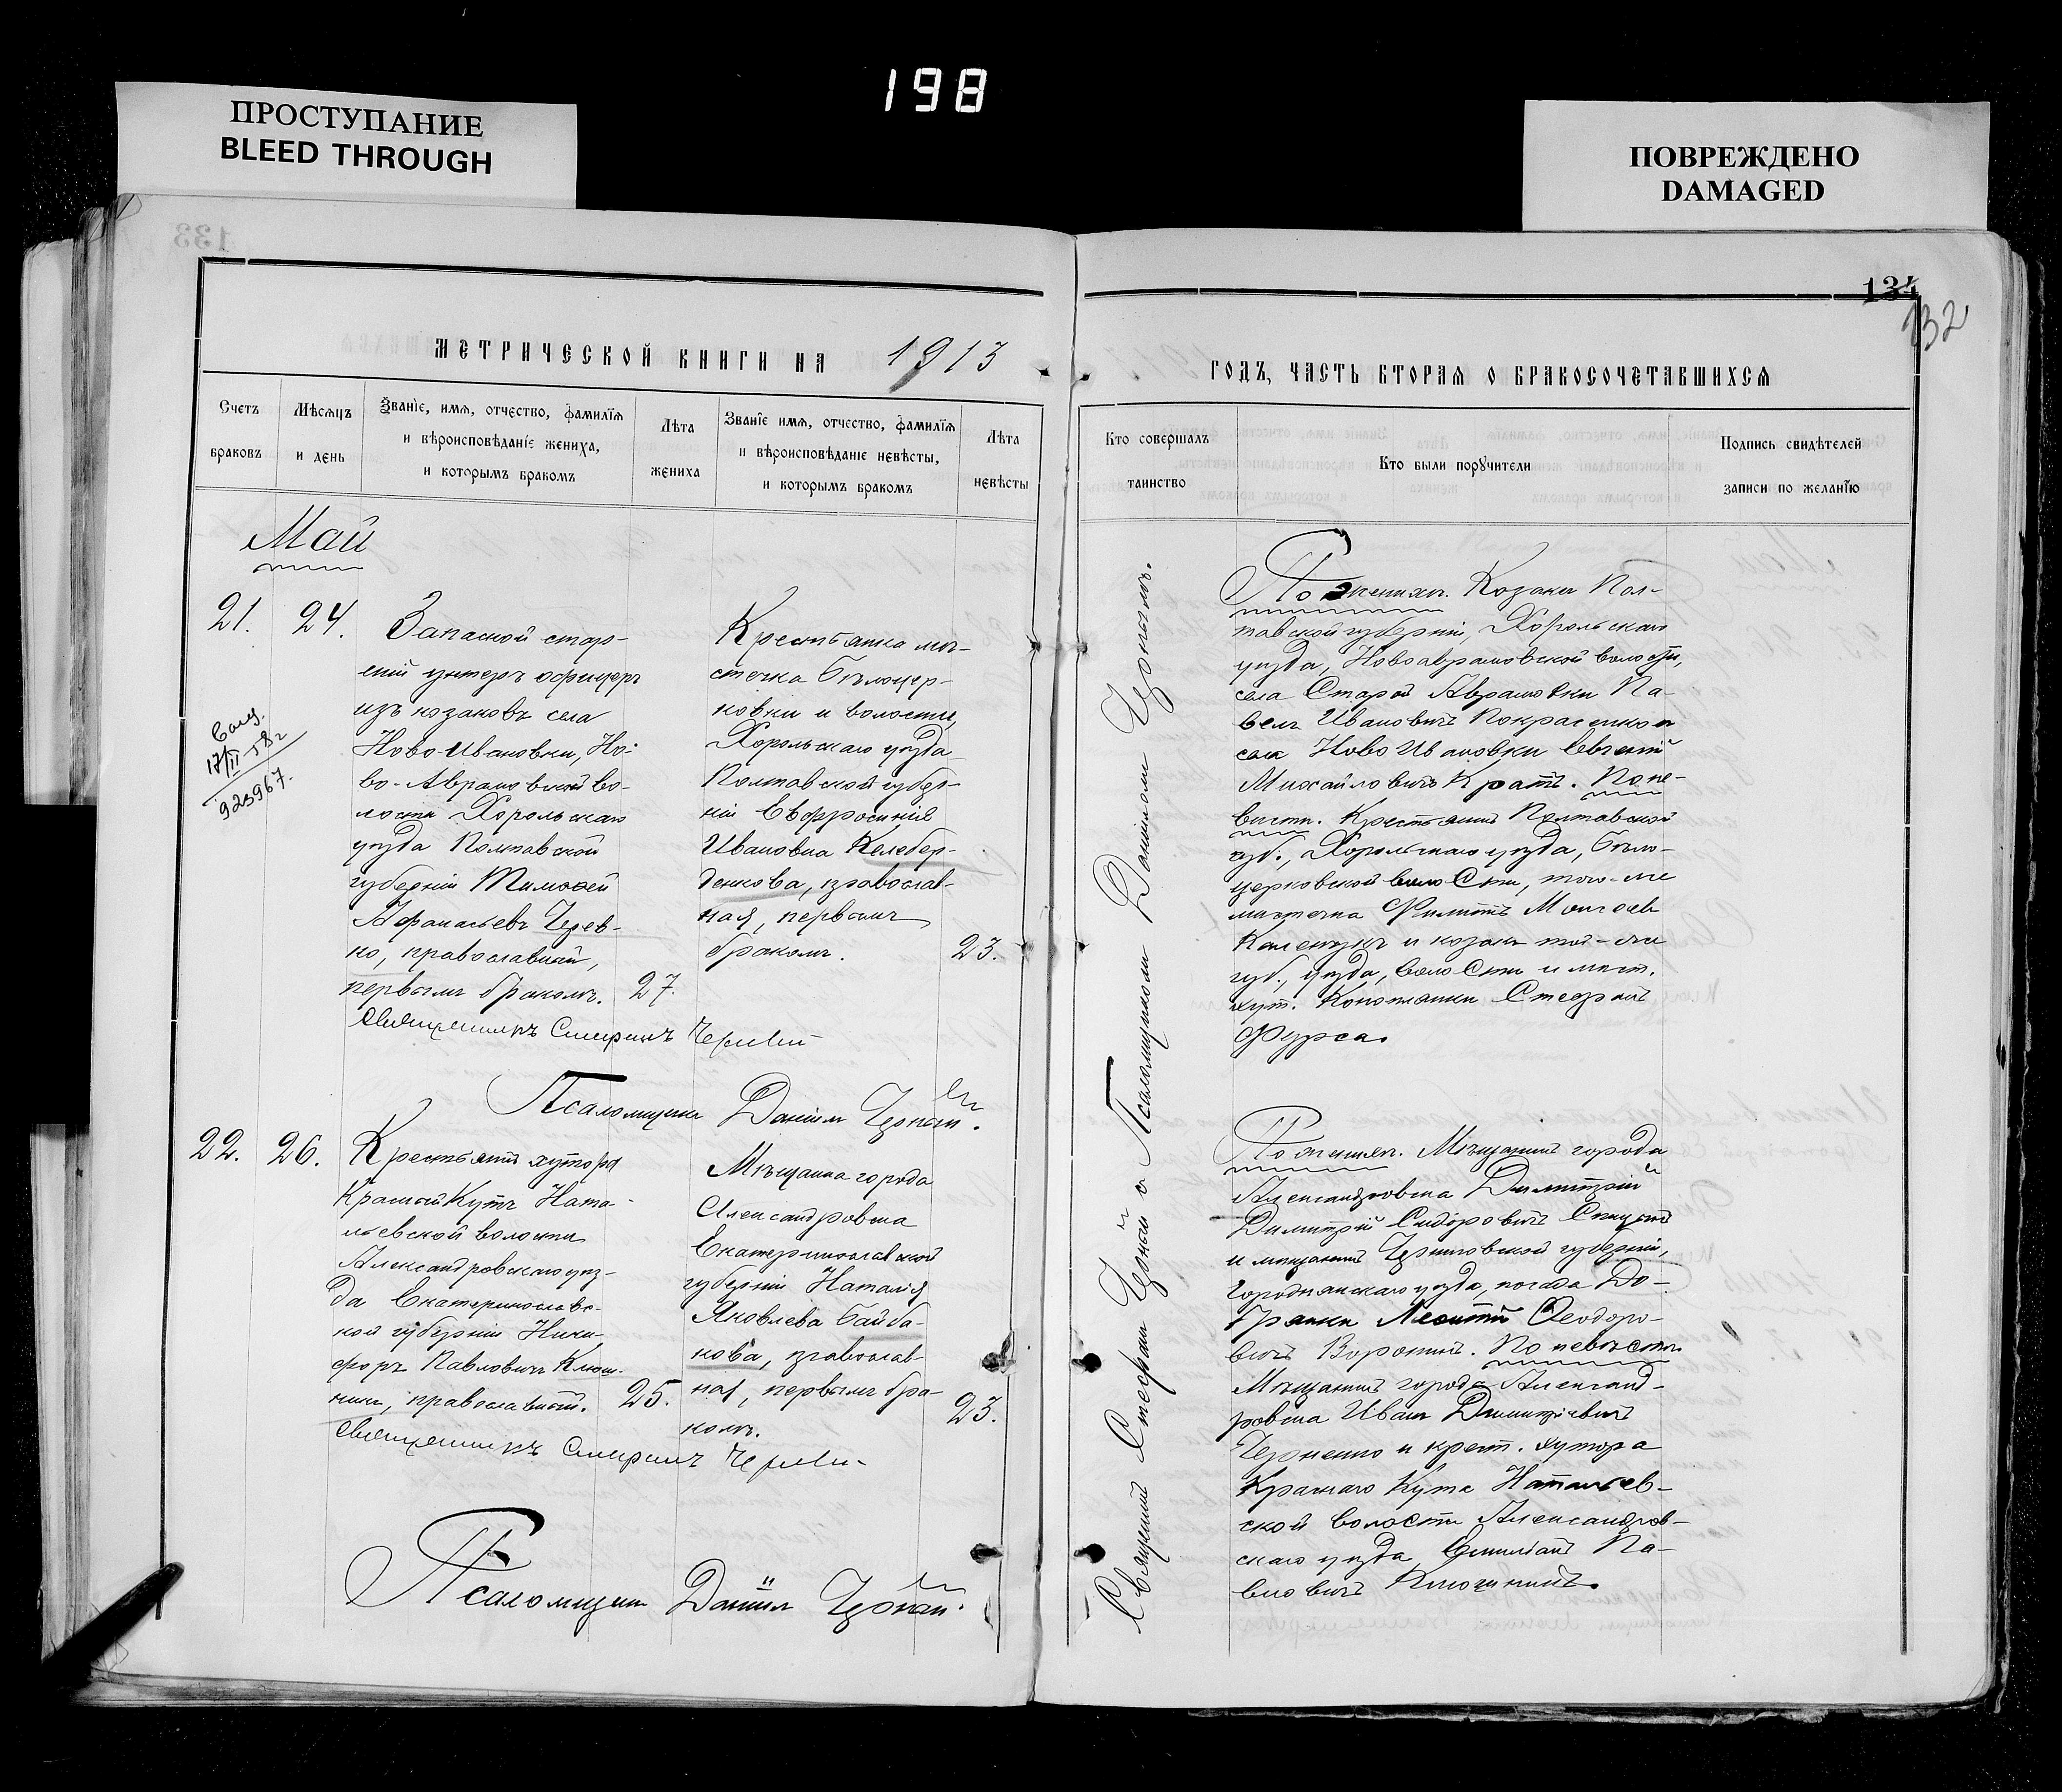 198
ПРОСТУПАНИЕ
BLEED THROUGH
ПОВРЕЖДЕНО
DAMAGED
133
МЕТРИЧЕСКОЙ КНИГИ НА 1913
Счетъ
браковъ
Мѣсяцъ
и день
Званіе, имя, отчество, фамилія
и вѣроисповѣданіе жениха,
и которымъ бракомъ
Лѣта
жениха
Званіе имя, отчество, фамилія
и вѣроисповѣданіе невѣсты,
и которымъ бракомъ
Лѣта
невѣсты
Май
21.
24.
17/II-58г
923967.
Запасной стар-
шій унтеръ офицеръ
изъ козаковъ села
Ново-Ивановки, Но-
во-Аврамовской во-
лости Хорольскаго
уѣзда Полтавской
губерніи Тимофей
Афанасьевъ Черев-
ко, православный,
первымъ бракомъ.
27.
Крестьянка мѣ-
стечка Бѣлоцер-
ковки и волости,
Хорольскаго уѣзда
Полтавской губер-
ніи Евфросинія
Ивановна Келебер-
денкова, православ-
ная, первымъ
бракомъ.
23.
Священникъ
Псаломщикъ Даніилъ
22.
26.
Крестьянинъ хутора
Красный Кутъ Ната-
льевской волости
Александровскаго уѣз-
да Екатеринослав-
кой губерніи Ники-
форъ Павловичъ Ключ-
никъ, православный.
25.
Мѣщанка города
Александровска
Екатеринославской
губерніи Наталія
Яковлева Байба-
кова, православ-
ная, первымъ бра-
комъ.
23.
Священникъ
Псаломщикъ Даніилъ
134
132
ГОДЪ, ЧАСТЬ ВТОРАЯ О БРАКОСОЧЕТАВШИХСЯ
Кто совершалъ
таинство
Кто были поручители
Подпись свидѣтелей
записи по желанію
Псаломщикомъ Даніиломъ
По женихѣ. Козаки Пол-
тавской губерніи, Хорольскаго
уѣзда, Новоаврамовской волости,
села Старой Аврамовки Па-
велъ Ивановичъ Покрасенко и
села Ново Ивановки Евгеній
Михайловичъ Кратъ. По не-
вѣстѣ. Крестьянинъ Полтавской
губ., Хорольскаго уѣзда, Бѣло-
церковской волости, того-же
мѣстечка Филиппъ
и козакъ той-же
губ., уѣзда, волости и мѣст.
хут.
Фурса.
По женихѣ. Мѣщанинъ города
Александровска Димитрій
Димитрій Сидоровичъ
и мѣщанинъ Черниговской губерніи,
Городнянскаго уѣзда, посада До-
брянки Леонтій Ѳеодоро-
вичъ Воронинъ. По невѣстѣ.
Мѣщанинъ города Александ-
ровска Иванъ Димитріевичъ
Черненко и крест. хутора
Краснаго Кута Натальев-
ской волости Александров-
скаго уѣзда Емиліанъ Па-
вловичъ Ключникъ.